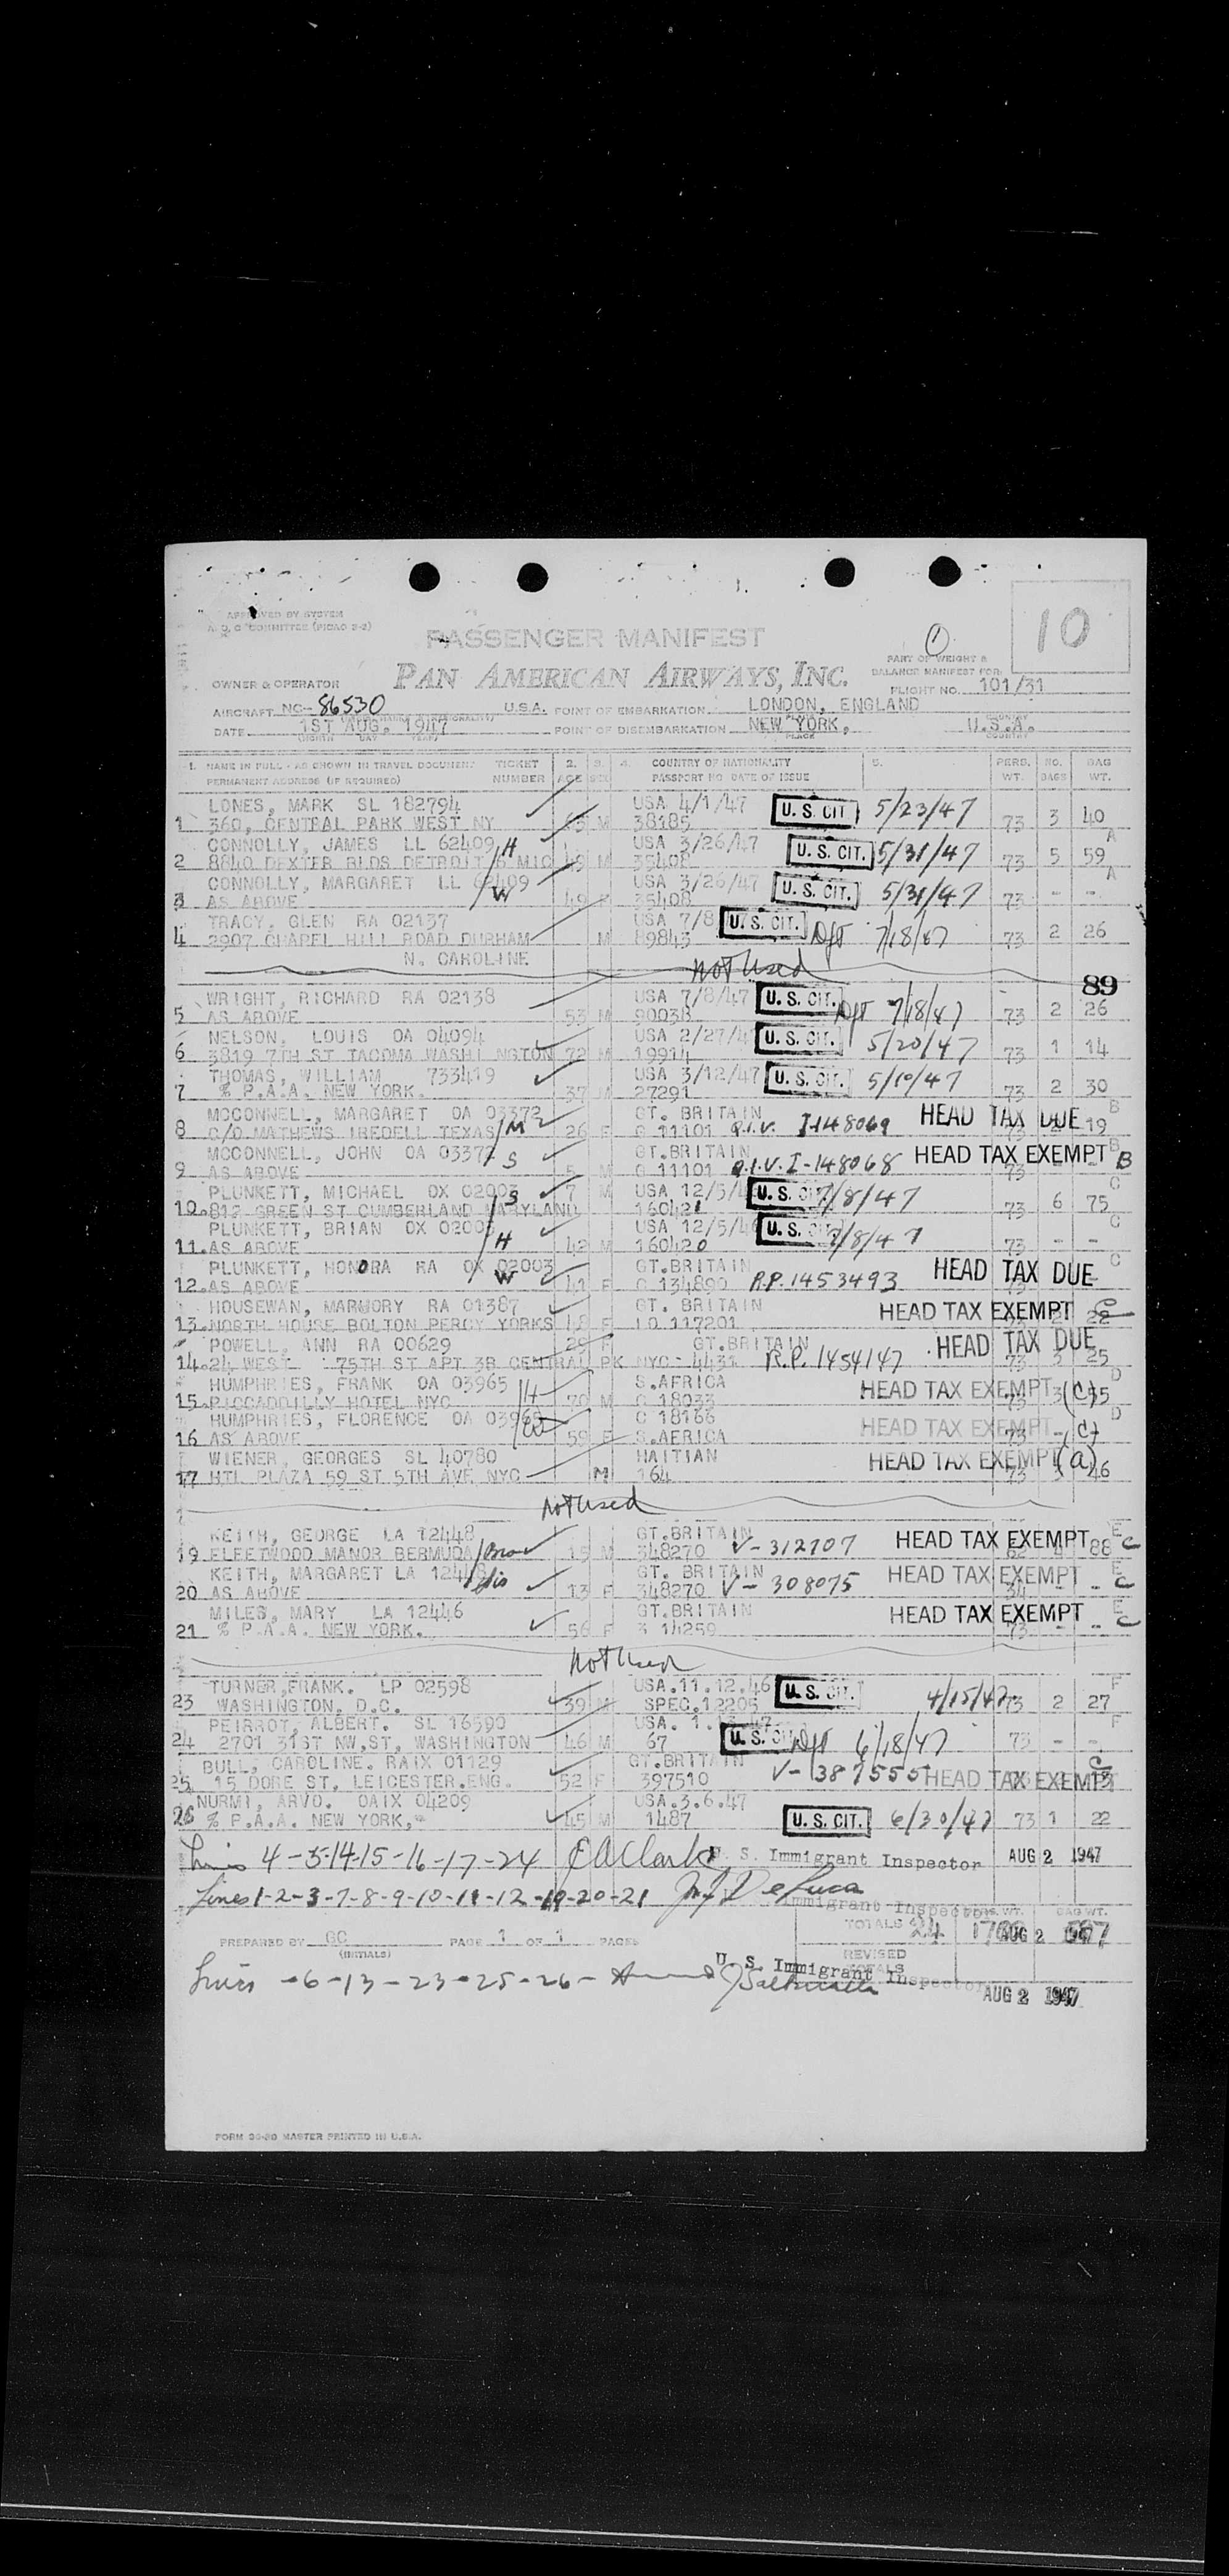 APPROVED BY SYSTEM
A. O. C. COMMITTEE (PICAO 2-2)
10
PASSENGER MANIFEST
PAN AMERICAN AIRWAYS, INC.
PART OF WEIGHT &
BALANCE MANIFEST FOR
FLIGHT NO. 101/31
OWNER & OPERATOR
AIRCRAFT NC- 86530 U.S.A. POINT OF EMBARKATION LONDON, ENGLAND
DATE 1ST AUG. 1947 POINT OF DISEMBARKATION NEW YORK, U.S.A.
(MONTH DAY YEAR) PLACE COUNTRY
1. NAME IN FULL - AS SHOWN IN TRAVEL DOCUMENT TICKET 2. 3. 4. COUNTRY OF NATIONALITY 5. PERS. NO. BAG
PERMANENT ADDRESS (IF REQUIRED) NUMBER AGE SEX PASSPORT NO DATE OF ISSUE WT. BAGS WT.
LONES, MARK SL 182794 USA 4/1/47 U. S. CIT 5/23/47
1 360, CENTRAL PARK WEST NY 63 M 38185 73 3 40
CONNOLLY, JAMES LL 62409 H USA 3/26/47 U. S. CIT. 5/31/47 A
2 8840 DEXTER BLDS DETROIT 6 MIC 49 M 35408 73 5 59
CONNOLLY, MARGARET LL 62409 USA 3/26/47 U. S. CIT. 5/31/47 A
3 AS ABOVE W 49 F 35408 73 - -
TRACY, GLEN RA 02137 USA 7/8 U. S. CIT. Dft 7/18/47
4 2907 CHAPEL HILL ROAD DURHAM M 89843 73 2 26
N. CAROLINE
not used
89
WRIGHT, RICHARD RA 02138 USA 7/8/47 U. S. CIT. Dft 7/18/47
5 AS ABOVE 53 M 90038 73 2 26
NELSON, LOUIS OA 04094 USA 2/27/4 U. S. CIT. 5/20/47
6 3819 7TH ST TACOMA WASHINGTON 72 M 19914 73 1 14
THOMAS, WILLIAM 733419 USA 3/12/47 U. S. CIT. 5/10/47
7 % P.A.A. NEW YORK. 37 M 27291 73 2 30
MCCONNELL, MARGARET OA 03372 GT. BRITAIN HEAD TAX DUE B
8 C/O MATHEWS IREDELL TEXAS M 26 F O 11101 Q.I.V. I-148069 73 2 19
MCCONNELL, JOHN OA 03372 S GT.BRITAIN HEAD TAX EXEMPT B
9 AS ABOVE 5 M O 11101 Q.I.V. I-148068 73 B
PLUNKETT, MICHAEL OX 02003 S 7 M USA 12/5/4 U. S. CIT 7/8/47 C
10.819 GREEN ST CUMBERLAND MARYLAND 160421 73 6 75
PLUNKETT, BRIAN OX 02003 USA 12/5/46 U. S. CIT 7/8/47 C
11.AS ABOVE H 42 M 160420 73 - -
PLUNKETT, HONORA RA OX 02003 GT.BRITAIN HEAD TAX DUE C
12.AS ABOVE W 41 F O 134890 R.P. 1453493
HOUSEWAN, MARMORY RA 01387 GT. BRITAIN HEAD TAX EXEMPT C
13.NORTH HOUSE BOLTON PERCY YORKS 48 F LO 117201 22
POWELL, ANN RA 00629 29 F GT.BRITAIN HEAD TAX DUE
14.24 WEST 75TH ST APT 3B CENTRAL PK NYC 4431 R.P. 1454147 73 3 25
HUMPHRIES, FRANK OA 03965 H S.AFRICA HEAD TAX EXEMPT D
15.PICCADDILLY HOTEL NYC 70 M C 18033 73 3 (C)
HUMPHRIES, FLORENCE OA 03965 W C 18166 HEAD TAX EXEMPT D
16 AS ABOVE 59 F S.AFRICA 73 - (C)
WIENER, GEORGES SL 40780 HAITIAN HEAD TAX EXEMPT (a)
17 HTL PLAZA 59 ST 5TH AVE NYC M 164 73 46
not used
KEITH, GEORGE LA 12448 GT.BRITAIN HEAD TAX EXEMPT E
19 FLEETWOOD MANOR BERMUDA Bro 15 M 348270 V-312707 88 C
KEITH, MARGARET LA 12448 GT. BRITAIN HEAD TAX EXEMPT E
20 AS ABOVE sis 13 F 348270 V-308075 - - C
MILES, MARY LA 12446 GT.BRITAIN HEAD TAX EXEMPT E
21 % P.A.A. NEW YORK. 56 F 14259 73 - - C
not used
TURNER,FRANK. LP 02598 USA.11.12.46 U. S. CIT. F
23 WASHINGTON. D.C. 39 M SPEC.12205 4/15/47 73 2 27
PEIRROT, ALBERT. SL 16590 USA. 1. F
24 2701 31ST NW,ST, WASHINGTON 46 M 67 U. S. CIT Dft 6/18/47 73 - -
BULL, CAROLINE. RAIX 01129 GT.BRITAIN V-387555 HEAD TAX EXEMPT C
25 15 DORE ST. LEICESTER.ENG. 52 F 397510
NURMI, ARVO. OAIX 04209 USA.3.6.47
26 % P.A.A. NEW YORK, 45 M 1487 U. S. CIT. 6/30/47 73 1 22
Lines 4-5-14-15-16-17-24 C A Clark U. S. Immigrant Inspector AUG 2 1947
Lines 1-2-3-7-8-9-10-11-12-19-20-21 De Luca
Immigrant Inspector WT. BAG WT.
TOTALS 24 AUG 2 1947
PREPARED BY GC PAGE 1 OF 1 PAGES
(INITIALS)
REVISED
TOTALS
Lines -6-13-23-25-26- U. S. Immigrant Inspector
AUG 2 1947
FORM 90-80 MASTER PRINTED IN U.S.A.